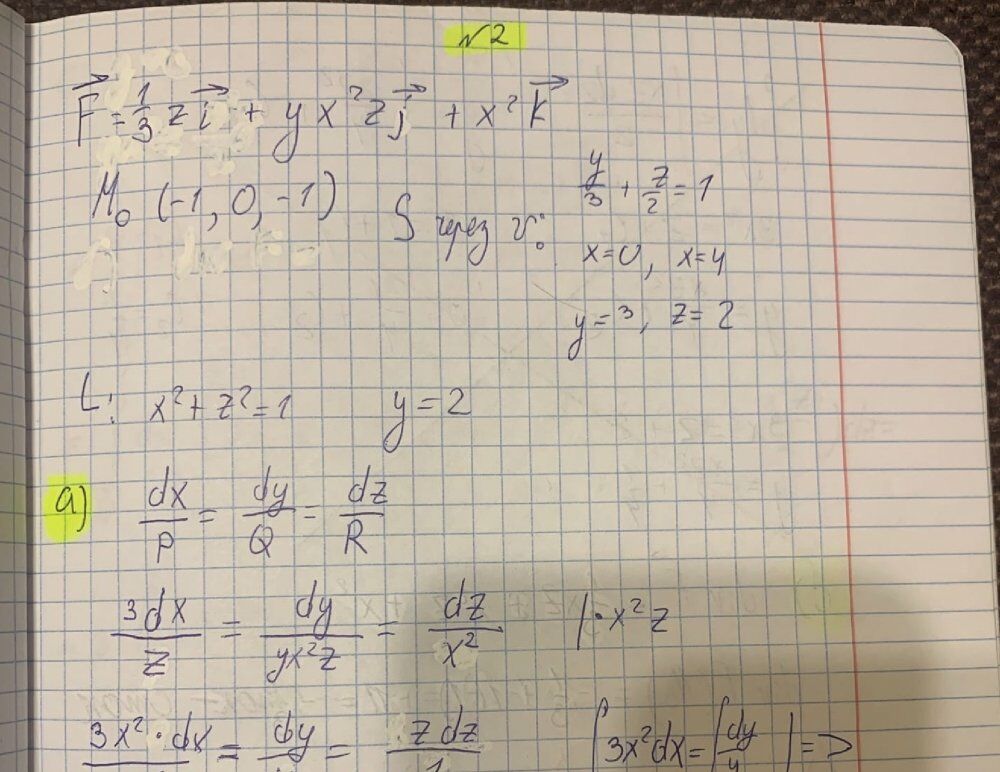 №2
F = 1/3 z i + y x²z j + x² k
M₀ (-1, 0, -1)
S через v:
y/3 + z/2 = 1
x=0, x=4
y=3, z=2
L: x² + z² = 1 y = 2
а) dx/P = dy/Q = dz/R
3dx/z = dy/yx²z = dz/x² | · x²z
3x²·dx = dy = z dz ∫3x²dx = ∫dy/y | =>